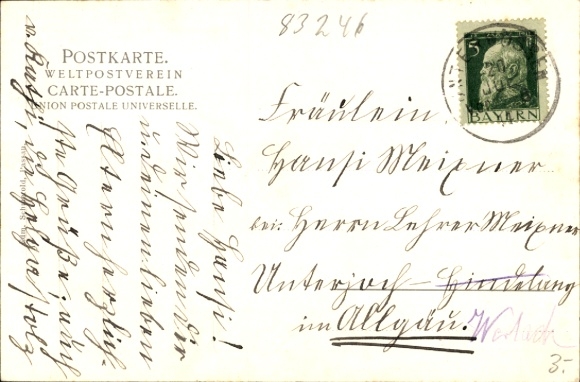 83246
POSTKARTE.
WELTPOSTVEREIN
CARTE-POSTALE.
UNION POSTALE UNIVERSELLE.
Liebe Hansi!
Wir senden dir
und deinen lieben
Eltern herzlich-
ste Grüße; auch
5
BAYERN
Fräulein
Hansi Meixner
bei: Herrn Lehrer Meixner
Unterjoch – Hindelang
im Allgäu.
Wertach
3.-